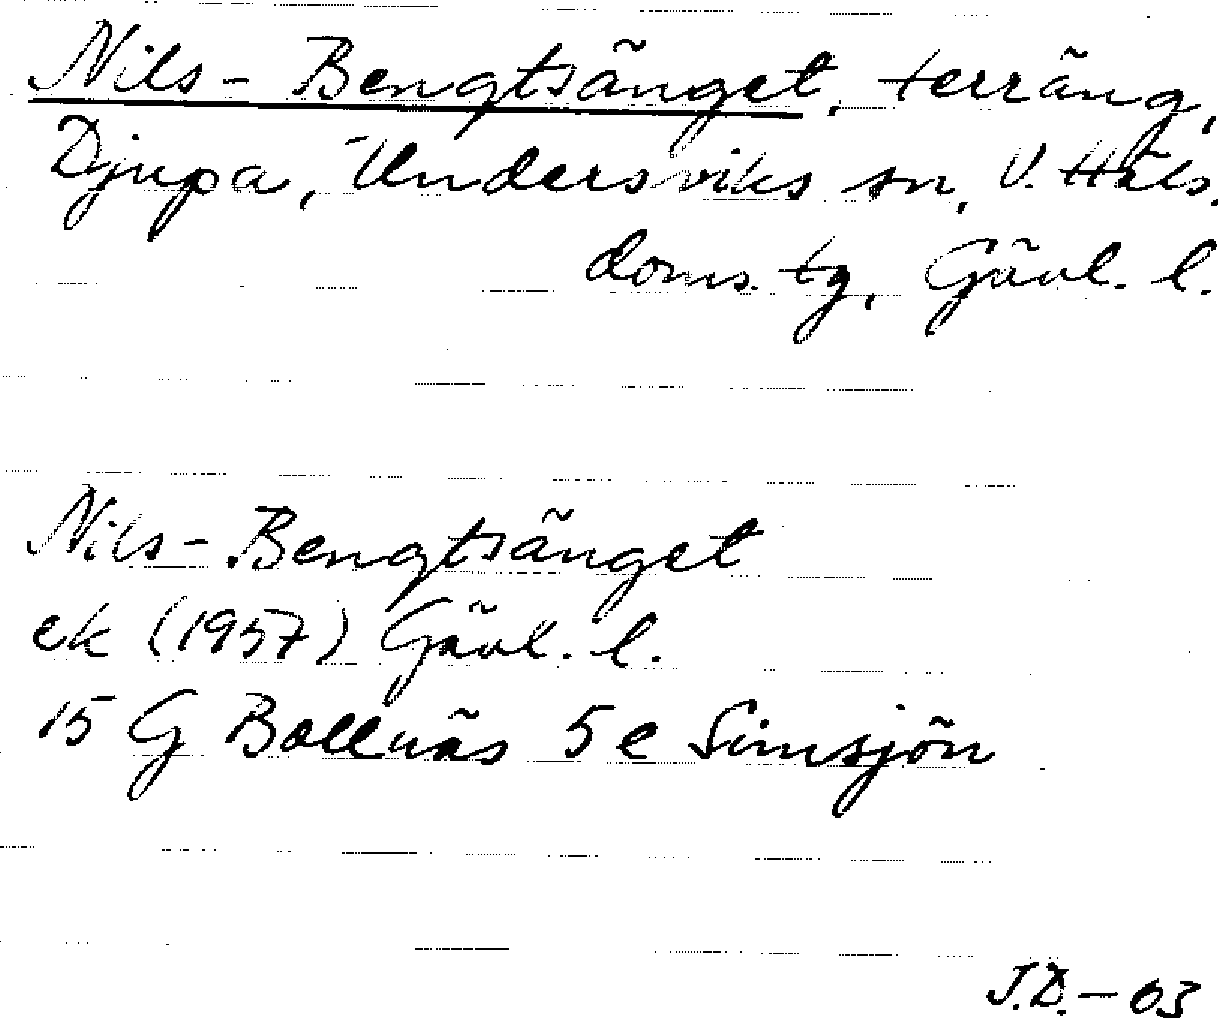 Nils-Bengtsänget, terräng,
Djupa, Undersviks sn, V. Häls.
doms. tg, Gävl. l.
Nils-Bengtsänget
ek (1957) Gävl. l.
15 G Bollnäs 5e Simsjön
J.D.-03